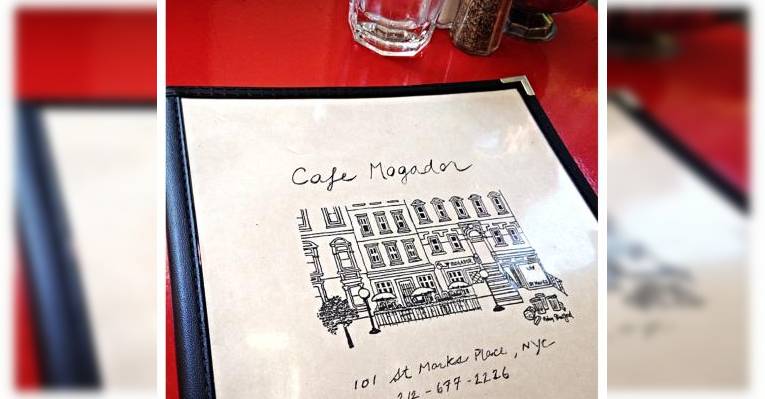 Cafe Mogador
101 St Marks Place, NYC
212-677-2226